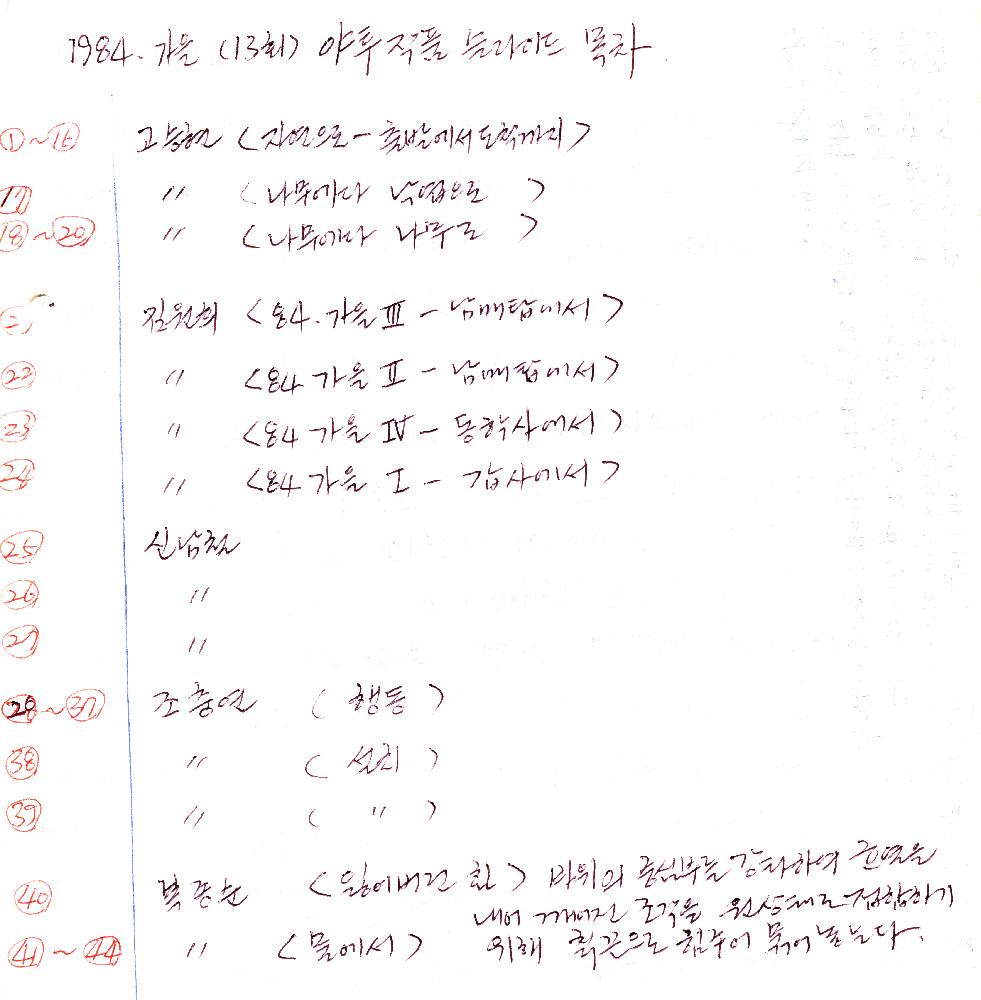 1984. 가을 (13회) 야투작품 슬라이드 목차.
①~⑯ 고승현 <자연으로 - 출발에서 도착까지>
17 〃 <나무에다 낙엽으로>
⑱~⑳ 〃 <나무에다 나무로>
김원희 <84. 가을 Ⅲ - 남매탑에서>
㉒ 〃 <84 가을 Ⅱ - 남매탑에서>
㉓ 〃 <84 가을 Ⅳ - 동학사에서>
㉔ 〃 <84 가을 Ⅰ - 갑사에서>
㉕ 신남철
㉖ 〃
㉗ 〃
㉘~㊲ 조충연 ( 행동 )
㊳ 〃 ( 설치 )
㊴ 〃 ( 〃 )
㊵ <잃어버린 > 바위의 중심부를 강타하여 균열을
내어 깨어진 조각을 원상태로 접합하기
㊶~㊹ 〃 <물에서> 위해 칡끈으로 힘주어 묶어 놓는다.